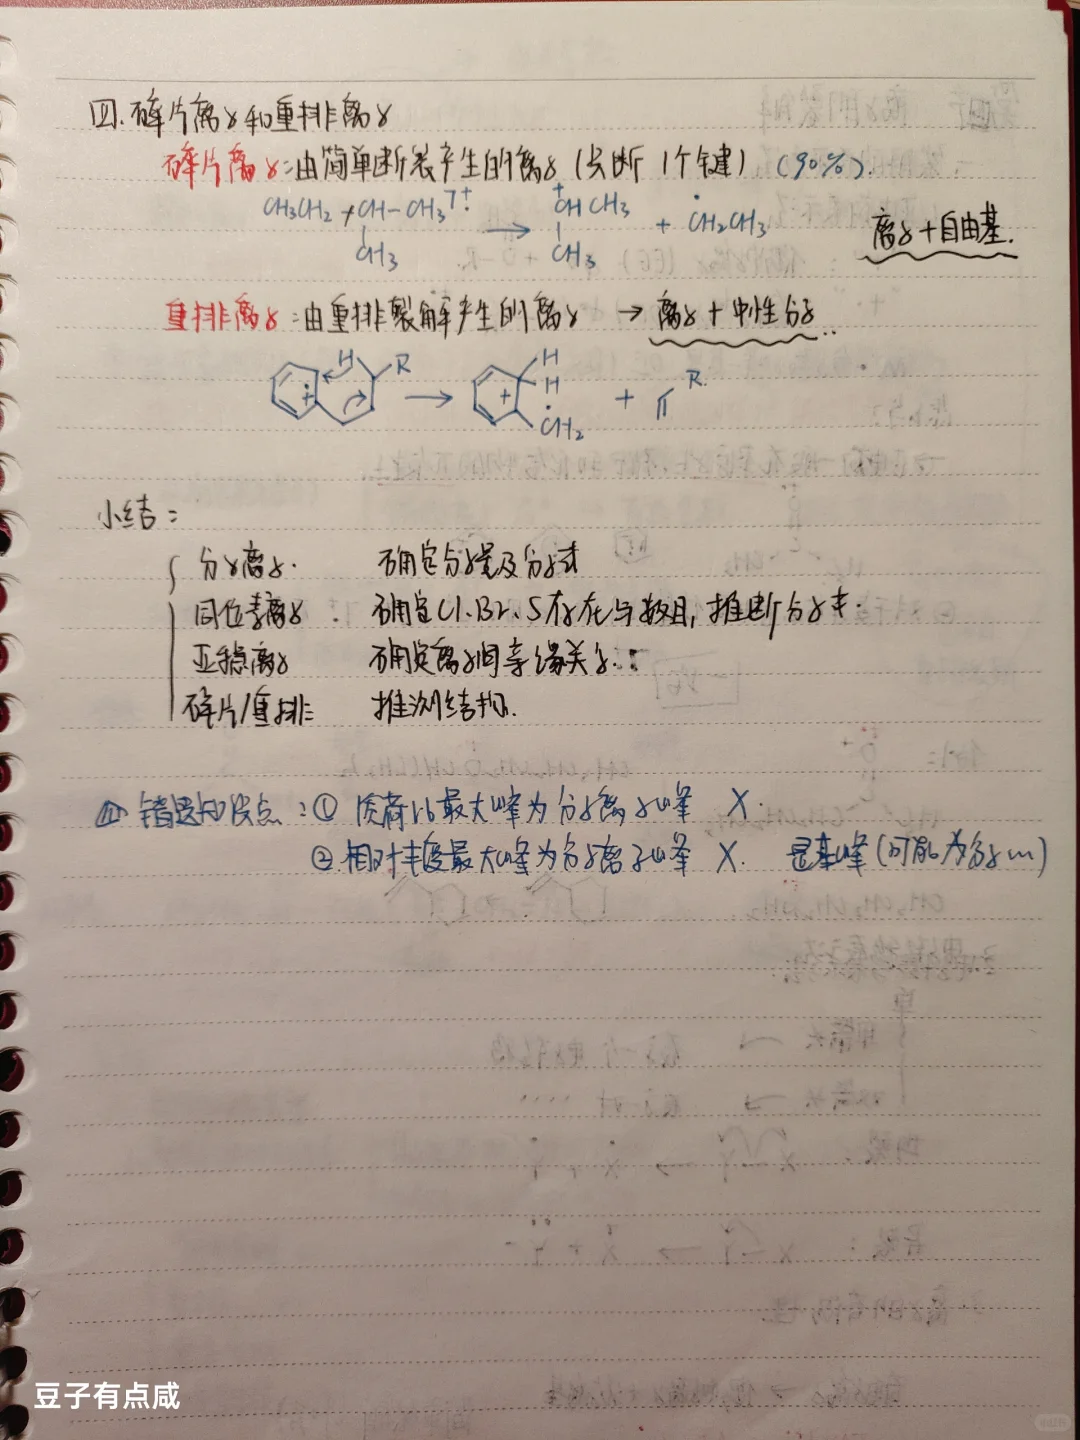 四.碎片离子和重排离子
碎片离子:由简单断裂产生的离子(只断1个键)(90%).
CH3CH2+CH-CH3 ⁊+· → +CHCH3 + ·CH2CH3
CH3 CH3
离子+自由基.
重排离子:由重排裂解产生的离子 → 离子+中性分子..
H R → H H ·CH2 + R
小结:
分子离子. 确定分子量及分子式
同位素离子: 确定Cl.Br.S存在与数目,推断分子式.
亚稳离子 确定离子间亲缘关系:
碎片/重排 推测结构.
四 错误知识点:① 质荷比最大峰为分子离子峰 X.
②相对丰度最大峰为分子离子峰 X. 是基峰(可能为分子m)
豆子有点咸